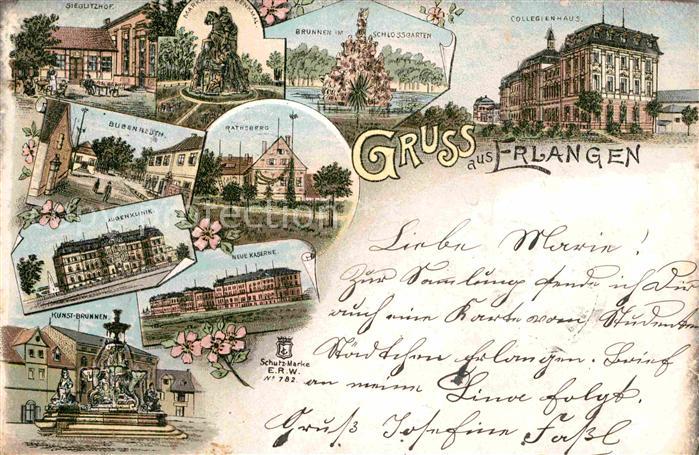 SIEGLITZHOF.
BRUNNEN IM SCHLOSSGARTEN
COLLEGIENHAUS.
BUBENREUTH.
RATHSBERG
GRUSS aus ERLANGEN
AUGENKLINIK.
NEUE KASERNE.
KUNST-BRUNNEN.
Schutz-Marke
E.R.W.
No 782.
Liebe Marie!
Zur Samlung sende ich Dir
auch eine Karte vom Studenten
Städtchen Erlangen. Brief
an meine Lina folgt.
Gruß Josefine Faßl